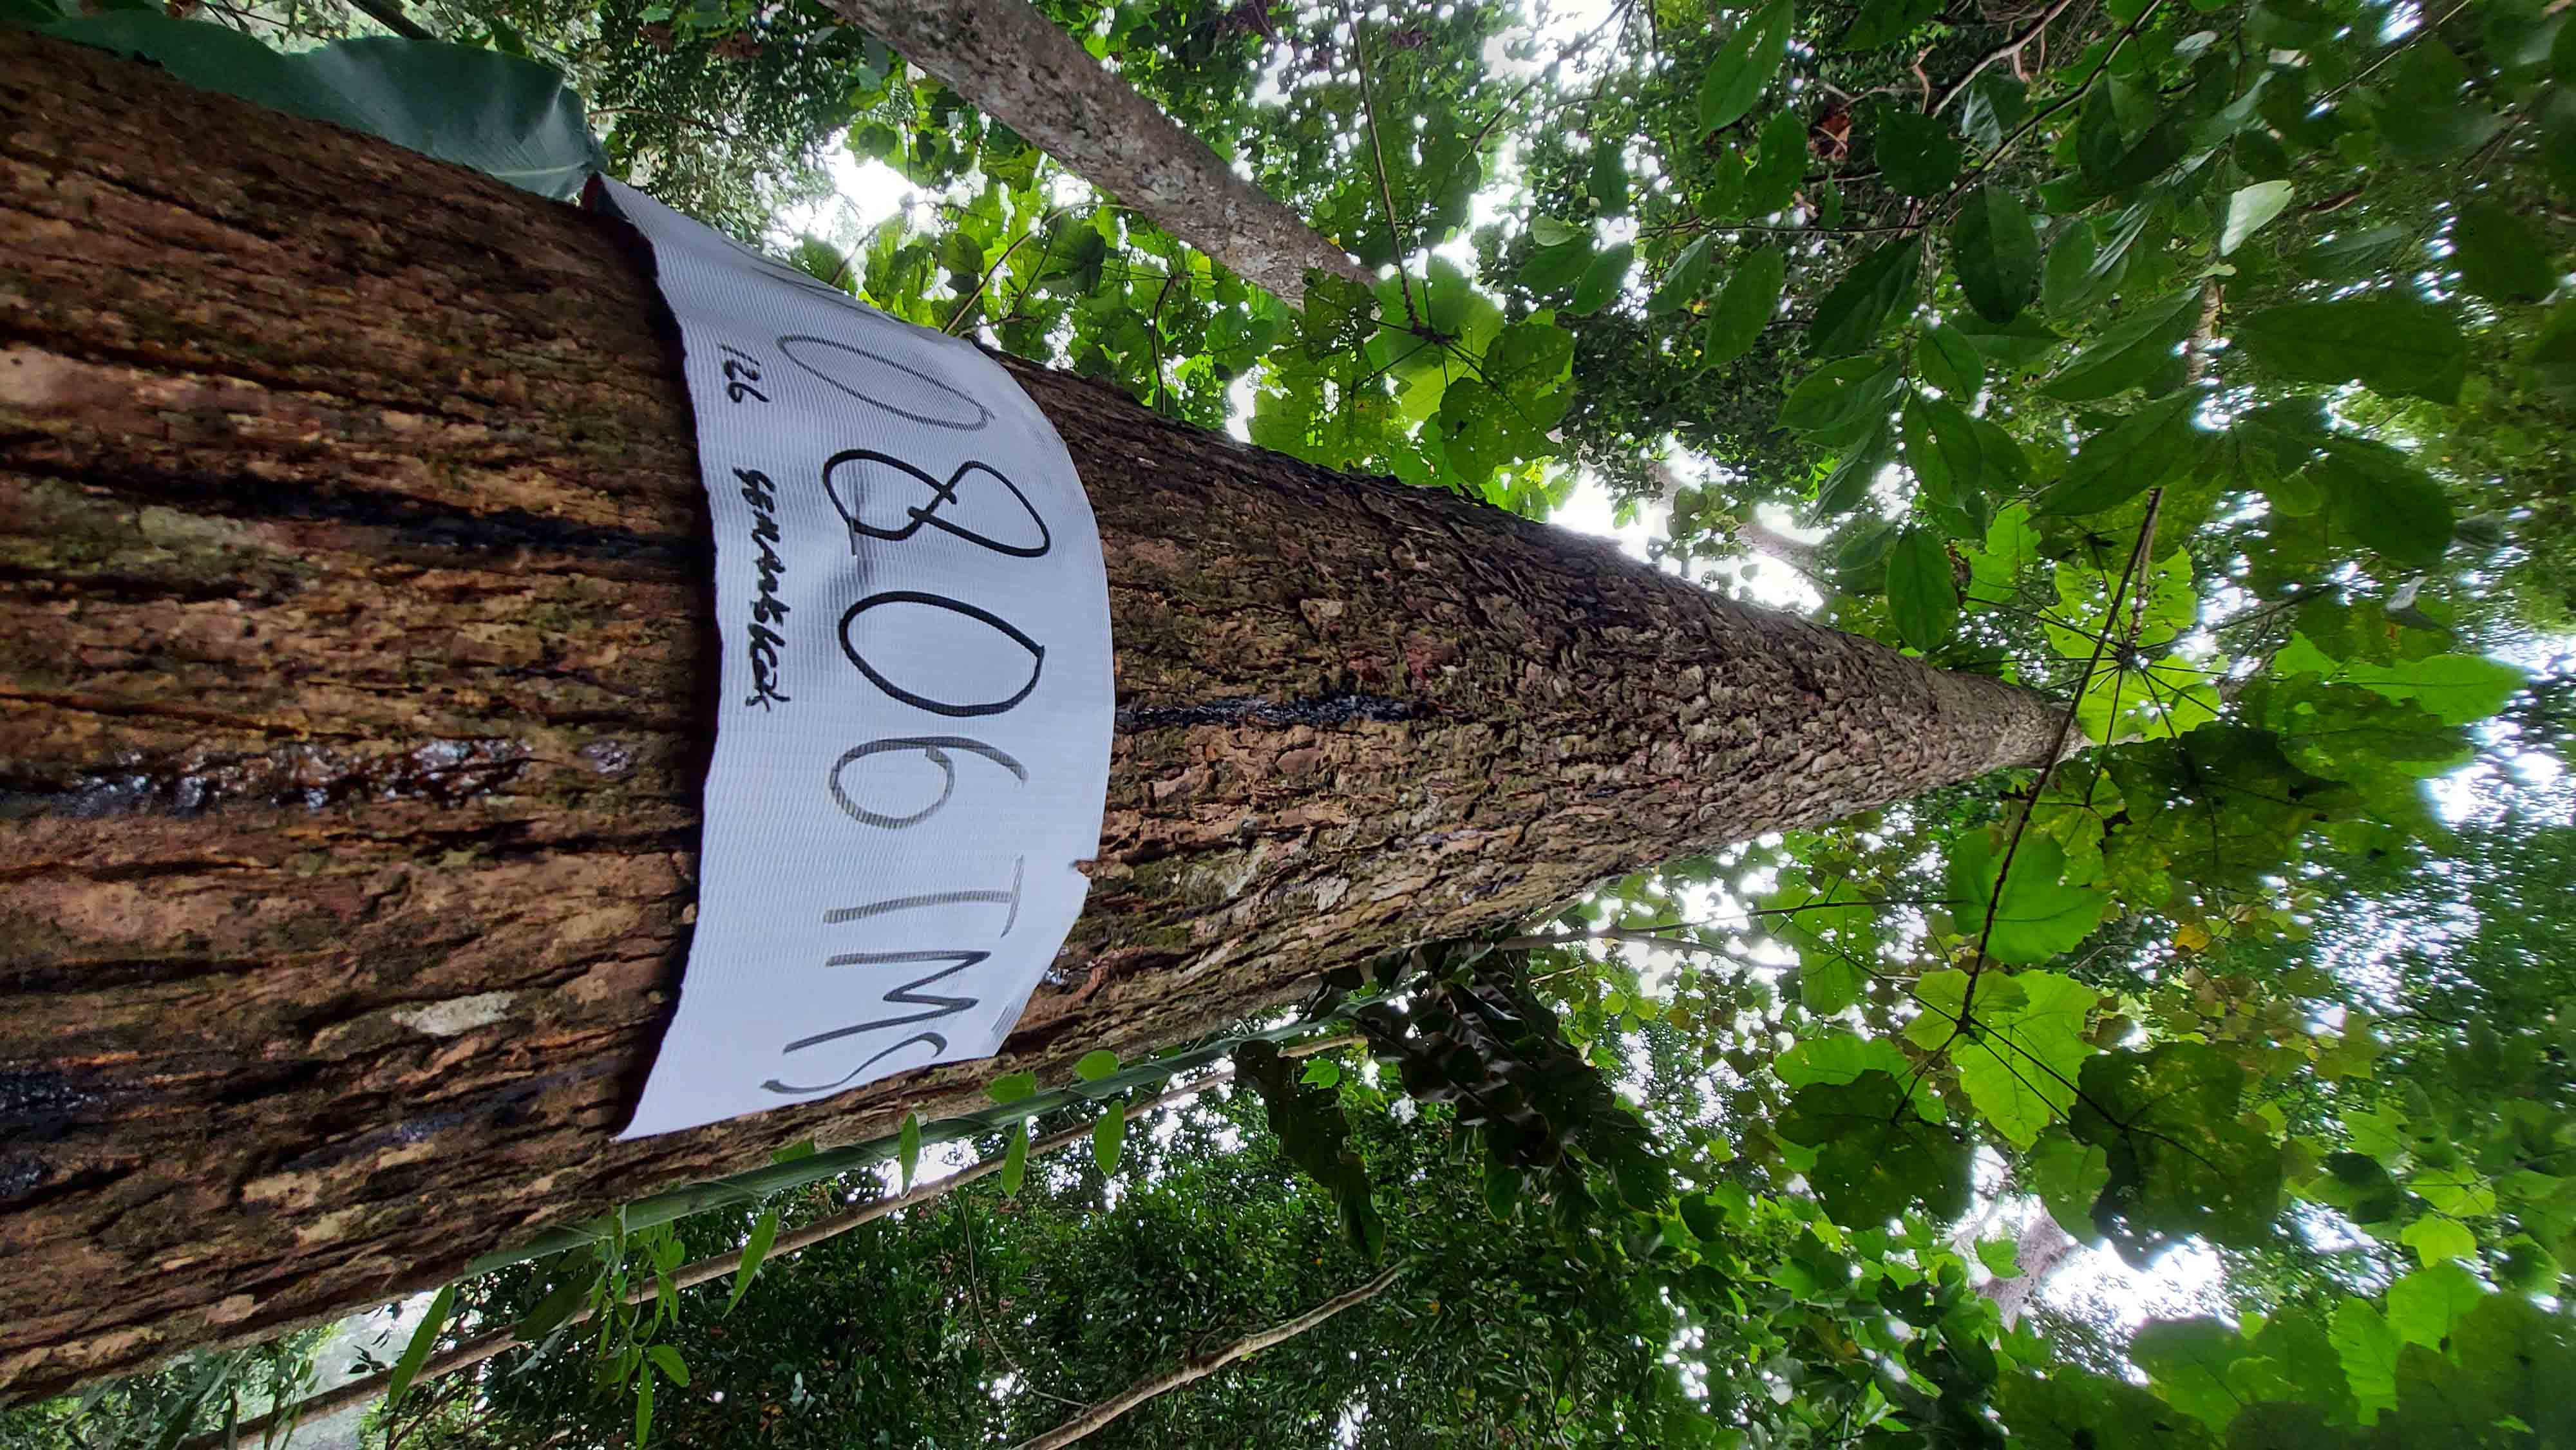 0806TMS
126 SEMANGKOK